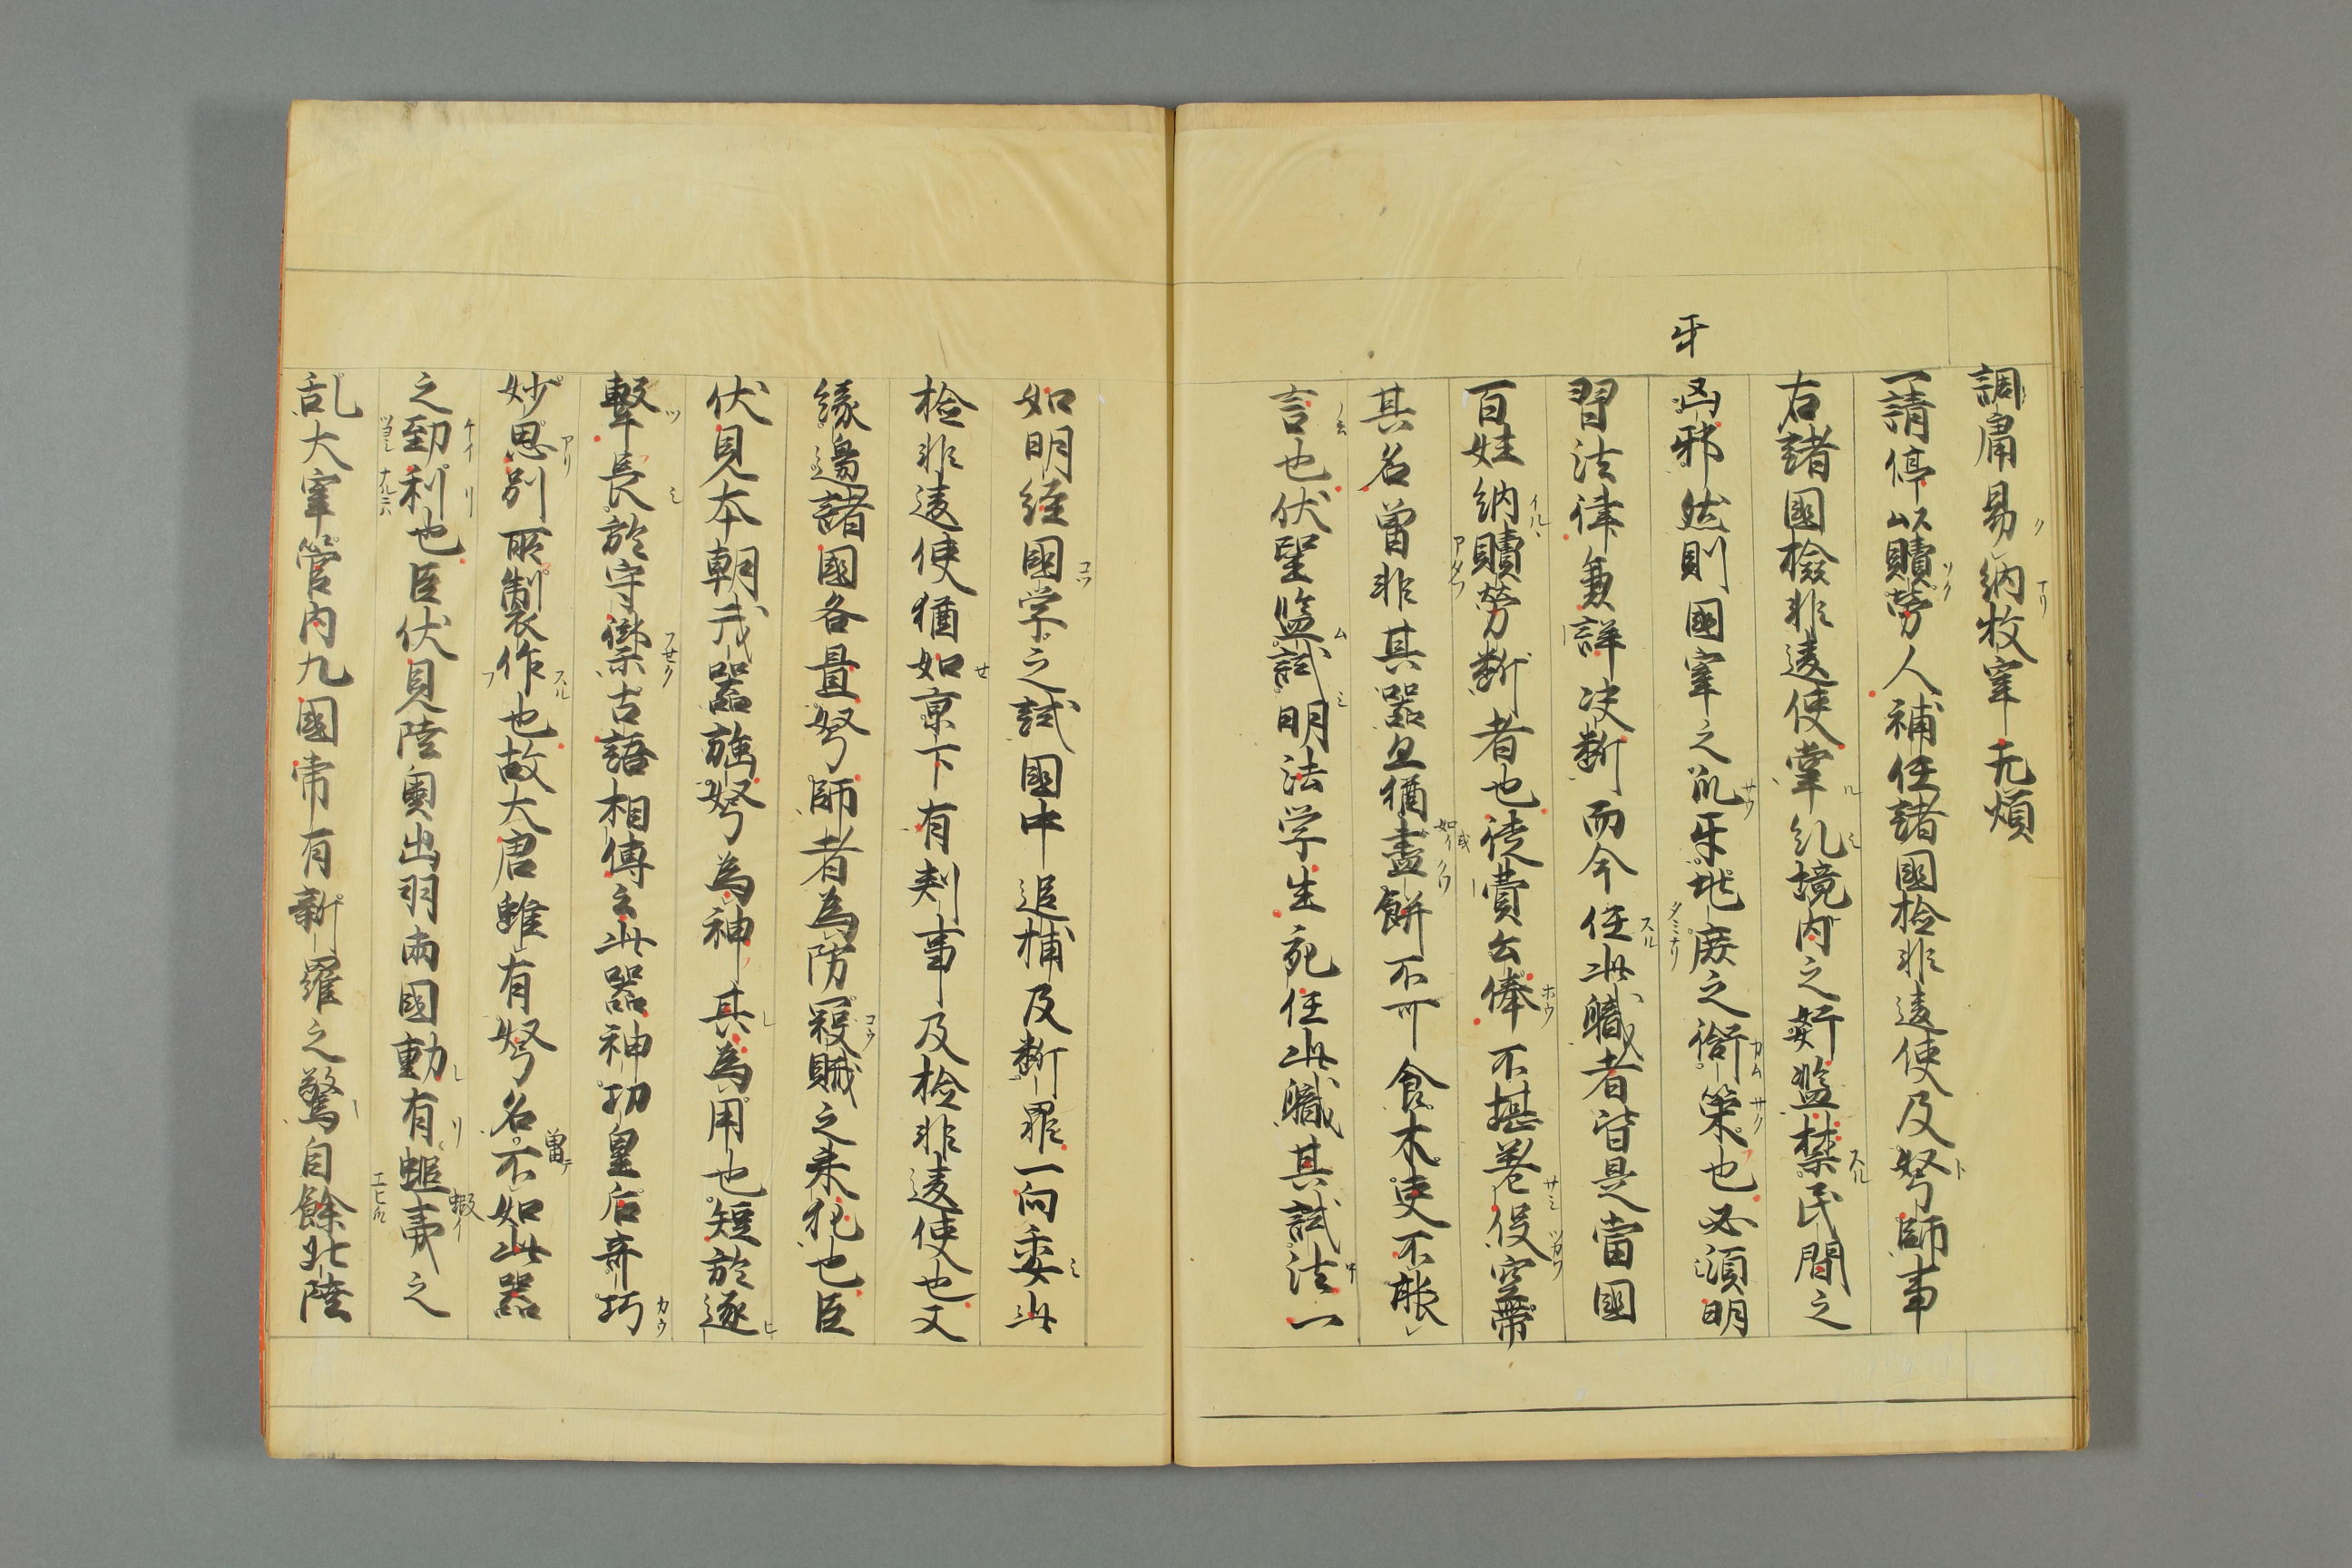 調庸易納牧宰无煩
一請停以贖勞人補任諸國檢非違使及弩師事
右諸國檢非違使掌糺境内之姧濫禁民間之
凶邪然則國宰之爪牙兆庶之銜策也必須明
牙
習法律兼詳决斷而今任此職者皆是當國
百姓納贖勞斷者也徒費公俸不堪差役空帶
其名曾非其器且猶畫餅不可食木吏不能
言也伏望監試明法学生宛任此職其試法一
如明經國学之試國中追捕及斷罪一向委此
檢非違使猶如京下有判事及檢非違使也又
縁邊諸國各置弩師者為防冦賊之来犯也臣
伏見本朝戎器強弩為神其為用也短於逐
擊長於守禦古語相傳云此器神功皇后奇巧
妙思別所製作也故大唐雖有弩名不如此器
之勁利也臣伏見陸奥出羽兩國動有蝦夷之
乱大宰管内九國常有新羅之警自餘北陸